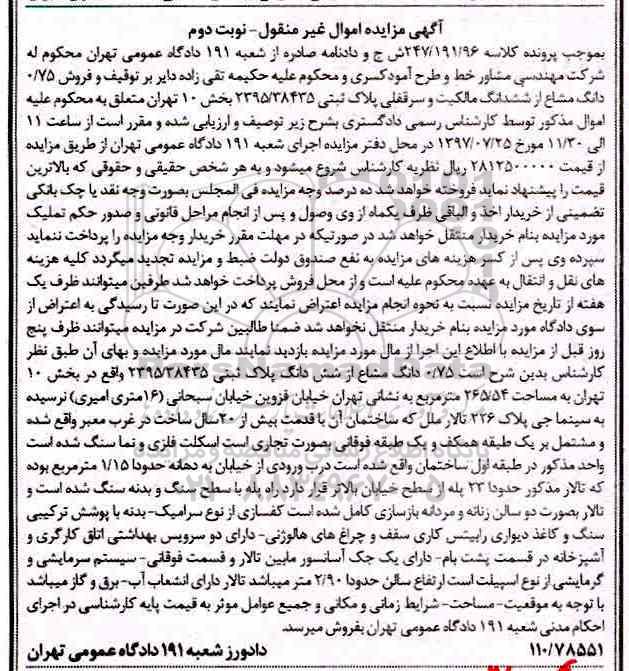 آگهی مزایده اموال غیر منقول- نوبت دوم
بموجب پرونده کلاسه ۲۴۷/۱۹۱/۹۶ش ج و دادنامه صادره از شعبه ۱۹۱ دادگاه عمومی تهران محکوم له
شرکت مهندسی مشاور خط و طرح آمودکسری و محکوم علیه حکیمه تقی زاده دایر بر توقیف و فروش ۰/۷۵
دانگ مشاع از ششدانگ مالکیت و سرقفلی پلاک ثبتی ۲۳۹۵/۳۸۴۳۵ بخش ۱۰ تهران متعلق به محکوم علیه
اموال مذکور توسط کارشناس رسمی دادگستری بشرح زیر توصیف و ارزیابی شده و مقرر است از ساعت ۱۱
الی ۱۱/۳۰ مورخ ۱۳۹۷/۰۷/۲۵ در محل دفتر مزایده اجرای شعبه ۱۹۱ دادگاه عمومی تهران از طریق مزایده
از قیمت ۲۸۱۲۵۰۰۰۰۰ ریال نظریه کارشناس شروع میشود و به هر شخص حقیقی و حقوقی که بالاترین
قیمت را پیشنهاد نماید فروخته خواهد شد ده درصد وجه مزایده فی المجلس بصورت وجه نقد یا چک بانکی
تضمینی از خریدار اخذ و الباقی ظرف یکماه از وی وصول و پس از انجام مراحل قانونی و صدور حکم تملیک
مورد مزایده بنام خریدار منتقل خواهد شد در صورتیکه در مهلت مقرر خریدار وجه مزایده را پرداخت ننماید
سپرده وی پس از کسر هزینه های مزایده به نفع صندوق دولت ضبط و مزایده تجدید میگردد کلیه هزینه
های نقل و انتقال به عهده محکوم علیه است و از محل فروش پرداخت خواهد شد طرفین میتوانند ظرف یک
هفته از تاریخ مزایده نسبت به نحوه انجام مزایده اعتراض نمایند که در این صورت تا رسیدگی به اعتراض از
سوی دادگاه مورد مزایده بنام خریدار منتقل نخواهد شد ضمنا طالبین شرکت در مزایده میتوانند ظرف پنج
روز قبل از مزایده با اطلاع این اجرا از مال مورد مزایده بازدید نمایند مال مورد مزایده و بهای آن طبق نظر
کارشناس بدین شرح است ۰/۷۵ دانگ مشاع از شش دانگ پلاک ثبتی ۲۳۹۵/۳۸۴۳۵ واقع در بخش ۱۰
تهران به مساحت ۲۶۵/۵۴ مترمربع به نشانی تهران خیابان قزوین خیابان سبحانی (۱۶متری امیری) نرسیده
به سینما جی پلاک ۲۳۶ تالار ملل که ساختمان آن با قدمت بیش از ۲۰سال ساخت در غرب معبر واقع شده
و مشتمل بر یک طبقه همکف و یک طبقه فوقانی بصورت تجاری است اسکلت فلزی و نما سنگ شده است
واحد مذکور در طبقه اول ساختمان واقع شده است درب ورودی از خیابان به دهانه حدودا ۱/۱۵ مترمربع بوده
که تالار مذکور حدودا ۲۳ پله از سطح خیابان بالاتر قرار دارد راه پله با سطح سنگ و بدنه سنگ شده است و
تالار بصورت دو سالن زنانه و مردانه بازسازی کامل شده است کفسازی از نوع سرامیک- بدنه با پوشش ترکیبی
سنگ و کاغذ دیواری رابیتس کاری سقف و چراغ های هالوژنی- دارای دو سرویس بهداشتی اتاق کارگری و
آشپزخانه در قسمت پشت بام- دارای یک جک آسانسور مابین تالار و قسمت فوقانی- سیستم سرمایشی و
گرمایشی از نوع اسپیلت است ارتفاع سالن حدودا ۲/۹۰ متر میباشد تالار دارای انشعاب آب- برق و گاز میباشد
با توجه به موقعیت- مساحت- شرایط زمانی و مکانی و جمیع عوامل موثر به قیمت پایه کارشناسی در اجرای
احکام مدنی شعبه ۱۹۱ دادگاه عمومی تهران بفروش میرسد.
۱۱۰/۷۸۵۵۱ دادورز شعبه ۱۹۱ دادگاه عمومی تهران